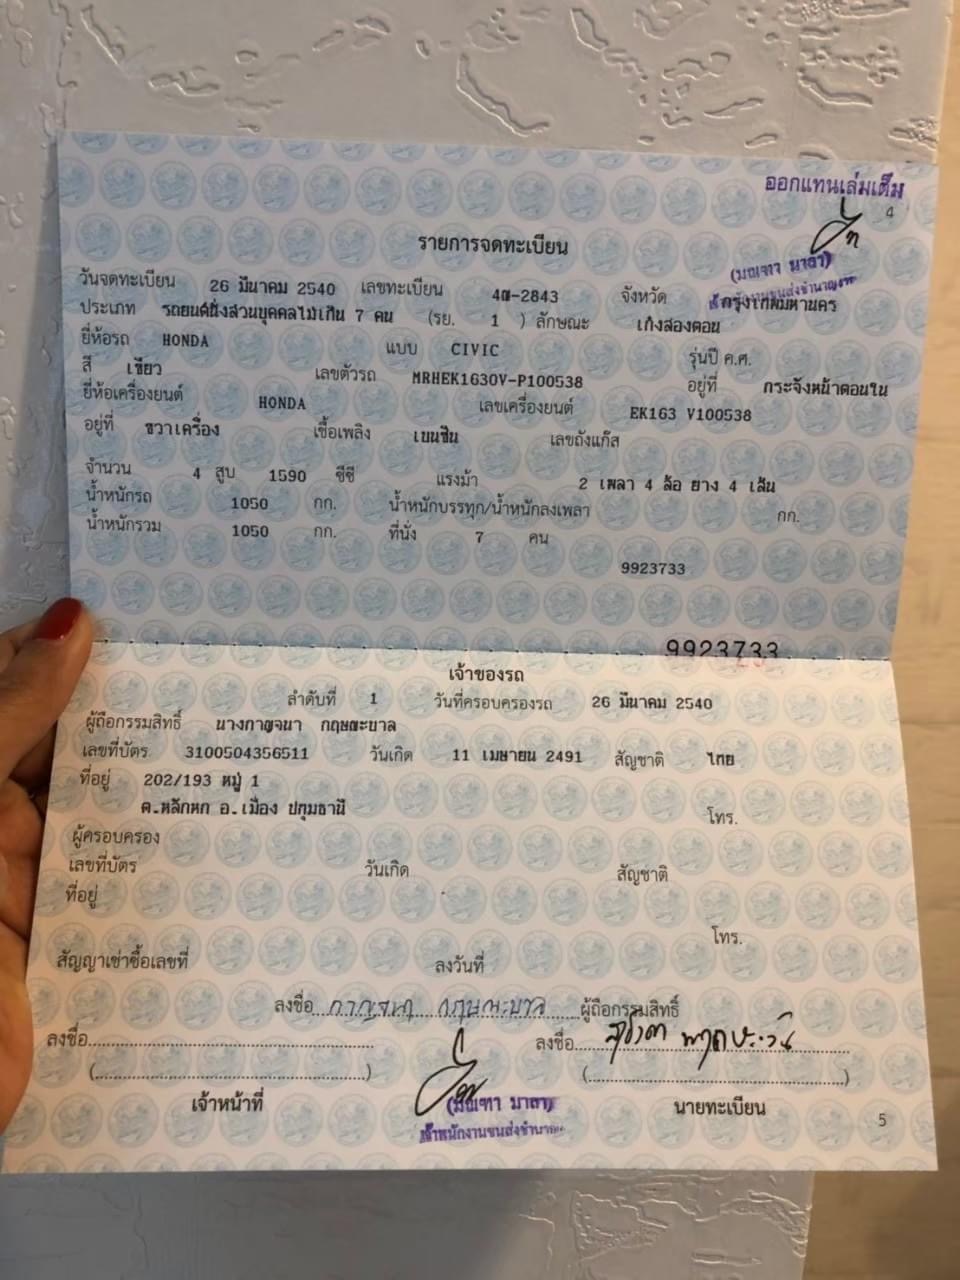 ออกแทนเล่มเต็ม
4
รายการจดทะเบียน
(มณฑา มาลา)
วันจดทะเบียน 26 มีนาคม 2540 เลขทะเบียน 4ฌ-2843 จังหวัด กรุงเทพมหานคร
ประเภท รถยนต์นั่งส่วนบุคคลไม่เกิน 7 คน (รย. 1 ) ลักษณะ เก๋งสองตอน
ยี่ห้อรถ HONDA แบบ CIVIC รุ่นปี ค.ศ.
สี เขียว เลขตัวรถ MRHEK1630V-P100538 อยู่ที่ กระจังหน้าตอนใน
ยี่ห้อเครื่องยนต์ HONDA เลขเครื่องยนต์ EK163 V100538
อยู่ที่ ขวาเครื่อง เชื้อเพลิง เบนซิน เลขถังแก๊ส
จำนวน 4 สูบ 1590 ซีซี แรงม้า 2 เพลา 4 ล้อ ยาง 4 เส้น
น้ำหนักรถ 1050 กก. น้ำหนักบรรทุก/น้ำหนักลงเพลา กก.
น้ำหนักรวม 1050 กก. ที่นั่ง 7 คน
9923733
9923733
เจ้าของรถ
ลำดับที่ 1 วันที่ครอบครองรถ 26 มีนาคม 2540
ผู้ถือกรรมสิทธิ์ นางกาญจนา กฤษณะบาล
เลขที่บัตร 3100504356511 วันเกิด 11 เมษายน 2491 สัญชาติ ไทย
ที่อยู่ 202/193 หมู่ 1
ต.หลักหก อ.เมือง ปทุมธานี โทร.
ผู้ครอบครอง
เลขที่บัตร วันเกิด สัญชาติ
ที่อยู่
โทร.
สัญญาเช่าซื้อเลขที่ ลงวันที่
ลงชื่อ กาญจนา กฤษณะบาล ผู้ถือกรรมสิทธิ์
ลงชื่อ ลงชื่อ
(มณฑา มาลา)
เจ้าหน้าที่ นายทะเบียน
เจ้าพนักงานขนส่งชำนาญงาน
5